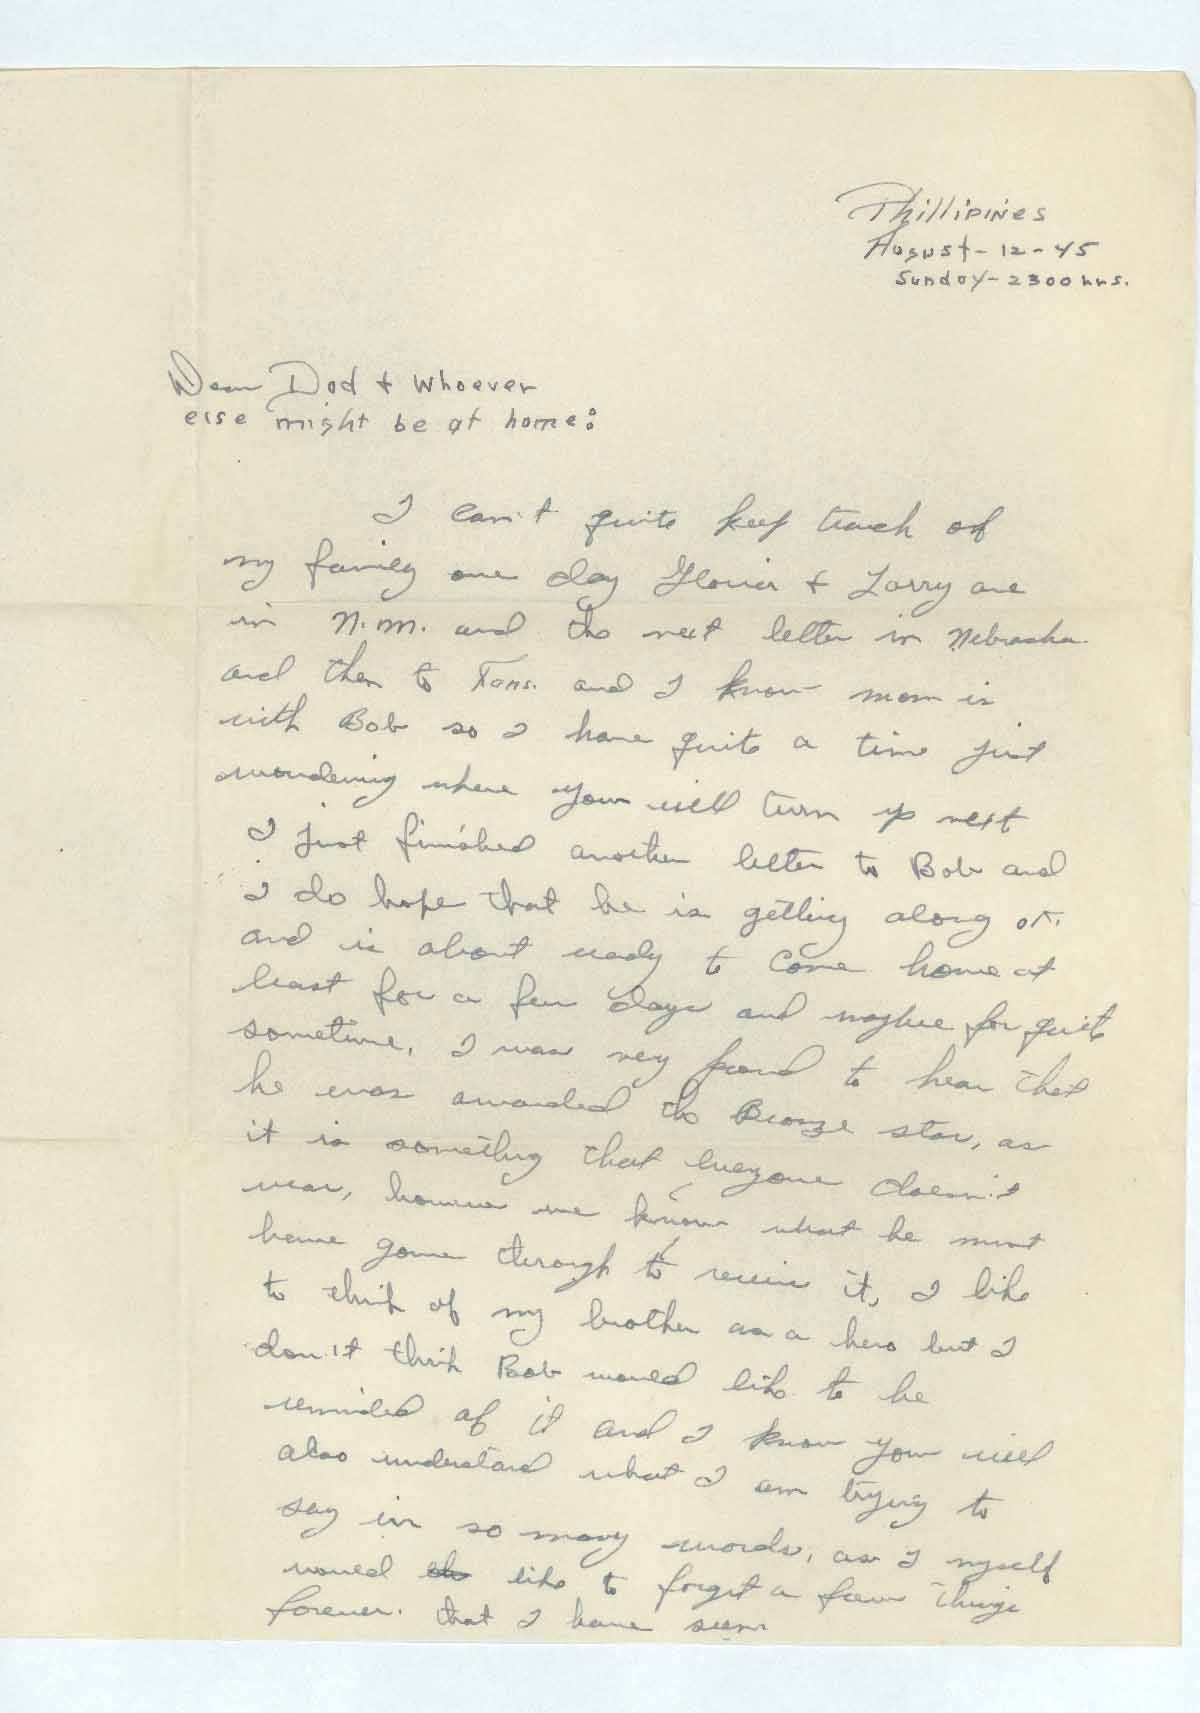 Phillipines
August-12-45
Sunday-2300 hrs.
Dear Dad + Whoever
else might be at home:
I can't quite keep track of
my family one day Gloria + Larry are
in N.M. and the next letter in Nebraska
and then to Kans. and I know mom is
with Bob so I have quite a time just
wondering where you will turn up next
I just finished another letter to Bob and
I do hope that he is getting along ok.
and is about ready to come home at
least for a few days and maybe for quite
sometime. I was very proud to hear that
he was awarded the Bronze star, as
it is something that everyone doesn't
wear, however we know what he must
have gone through to receive it, I like
to think of my brother as a hero but I
don't think Bob would like to be
reminded of it and I know you will
also understand what I am trying to
say in so many words, as I myself
would like to forget a few things
forever. that I have seen